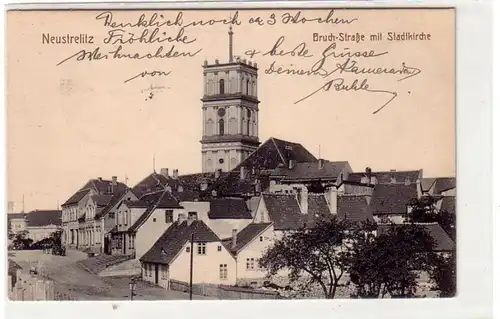 Neustrelitz
Bruch-Straße mit Stadtkirche
noch 3 Wochen
Fröhliche
Weihnachten
von
& beste Grüsse
Deinem Kameraden